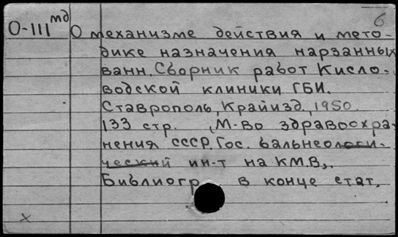 б
О-III мд О механизме действия и мето-
дике назначения нарзанных
ванн. Сборник работ Кисло-
водской клиники ГБИ.
Ставрополь, Крайизд, 1950.
133 стр. (М-во здравоохра-
нения СССР. Гос. бальнеологи-
ческий ин-т на КМВ).
Библиогр. в конце стат.
x